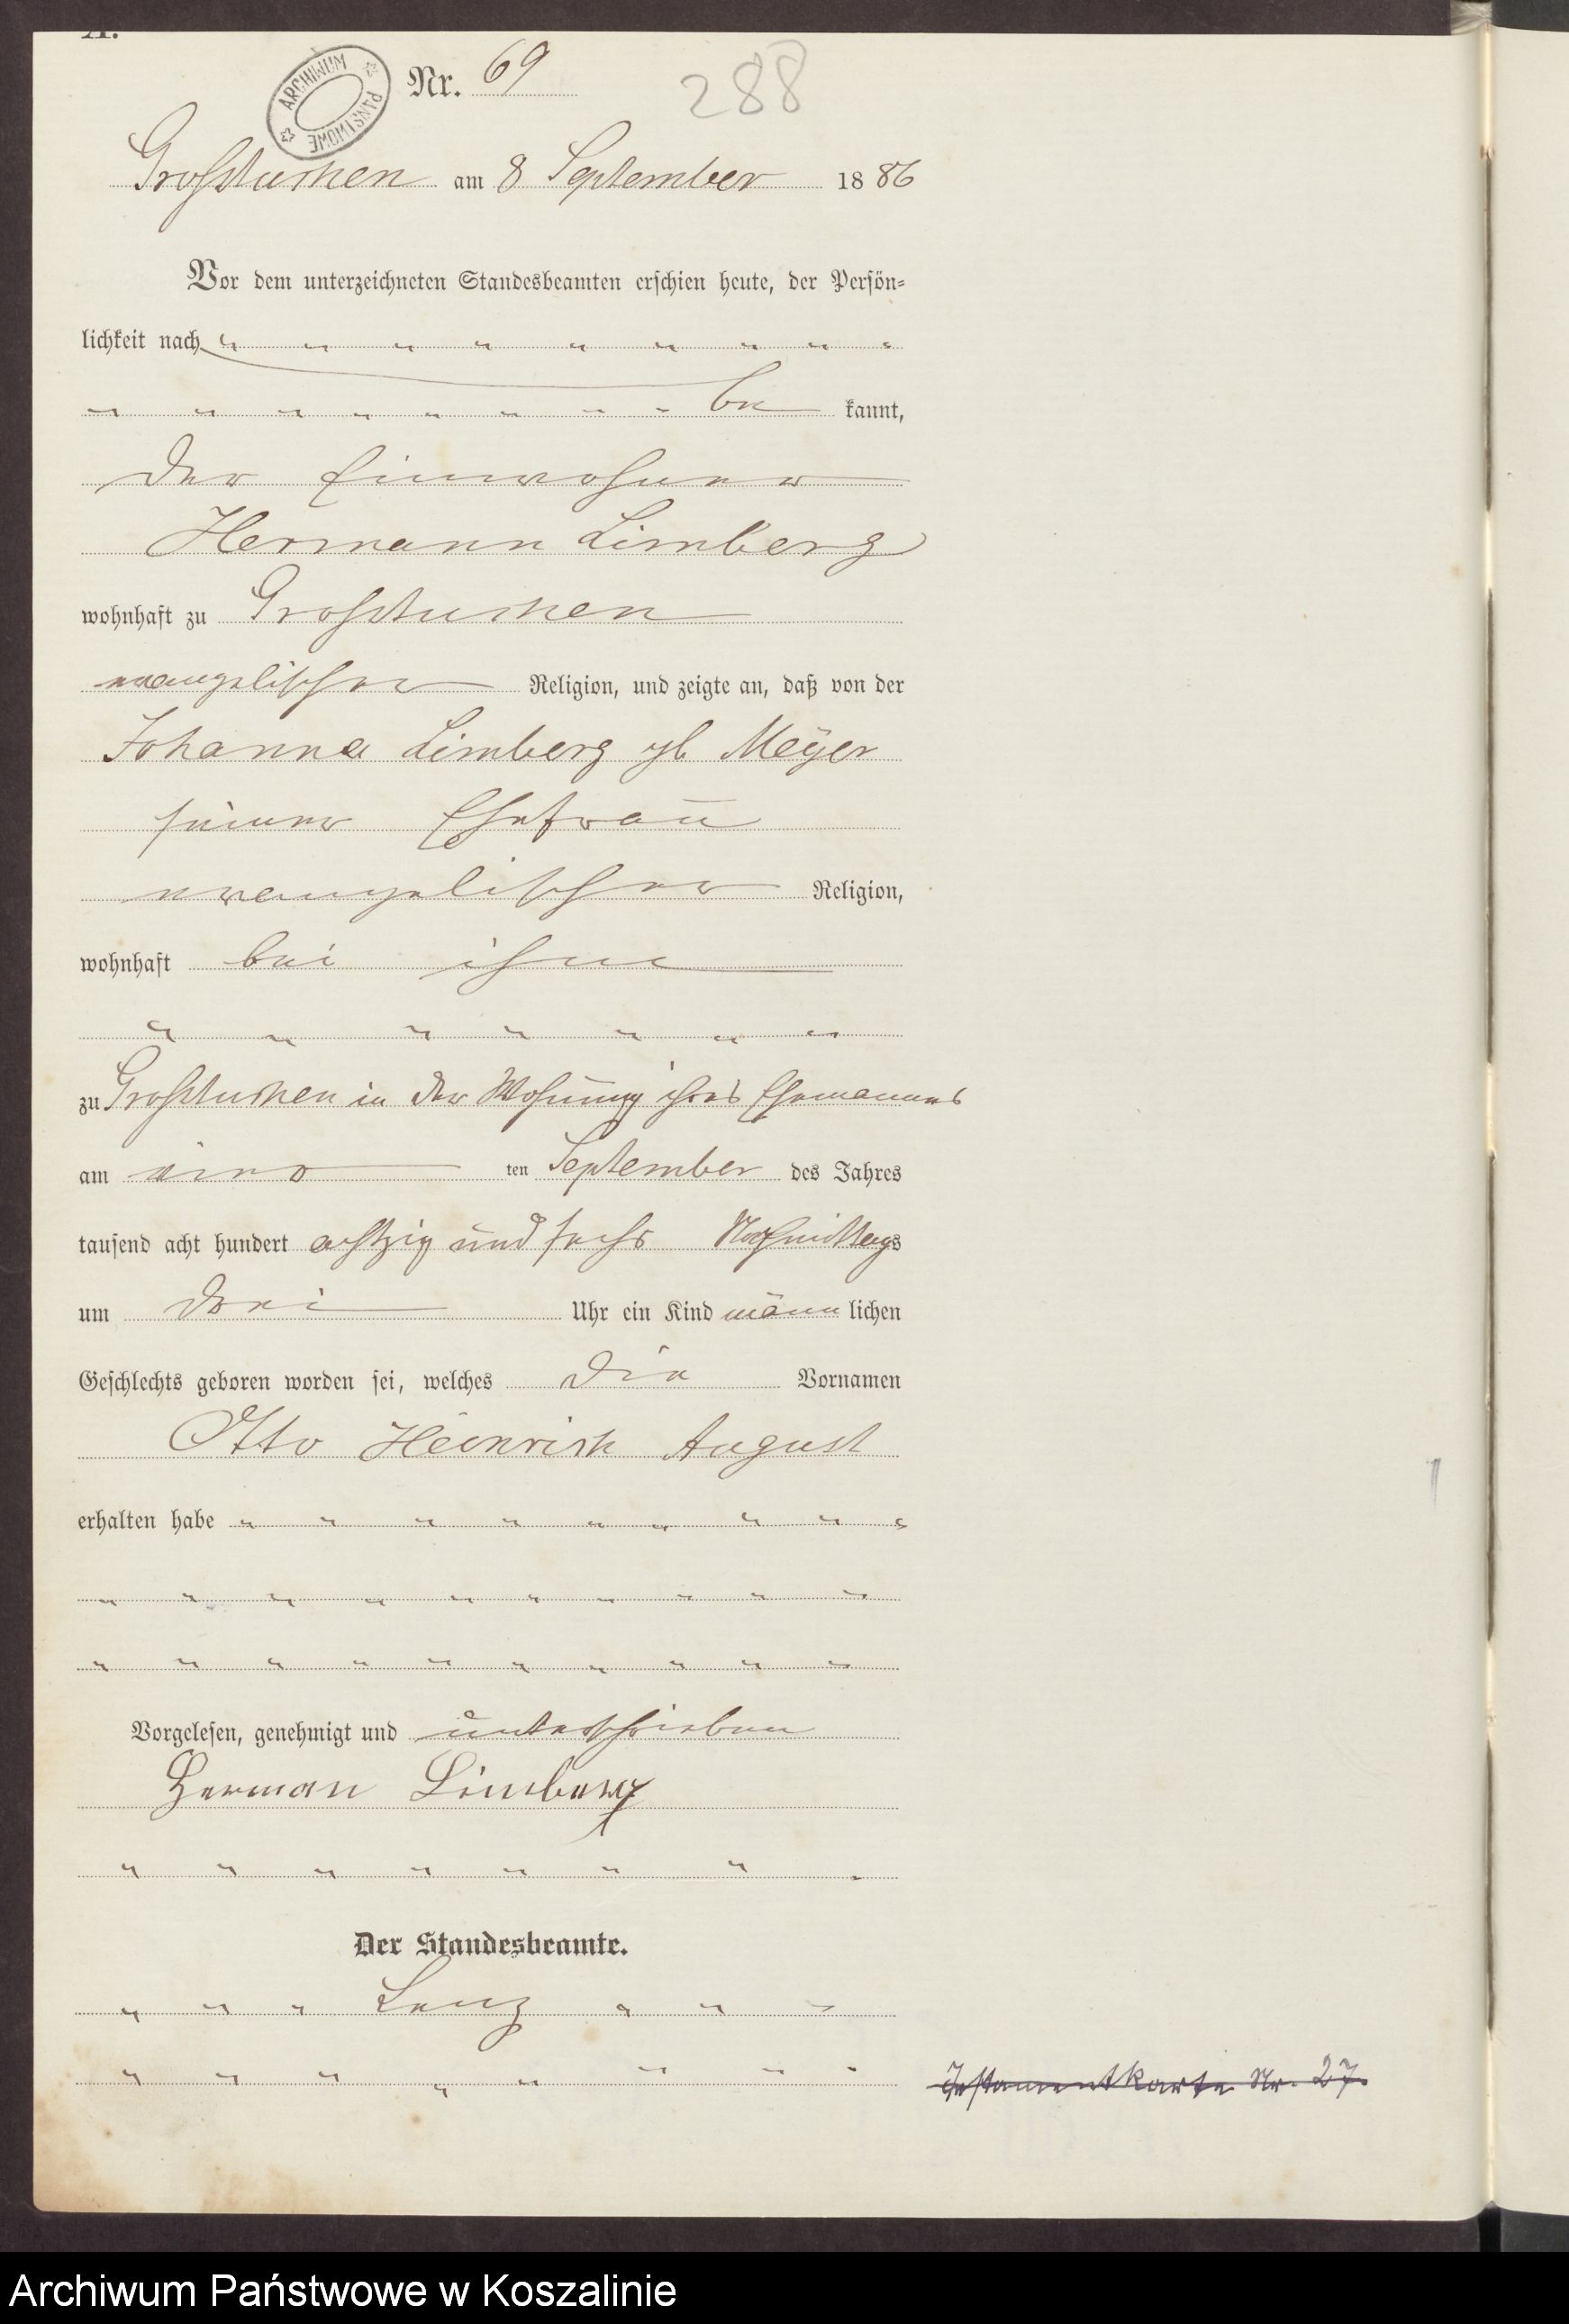 A.
ARCHIWUM PAŃSTWOWE
Nr. 69
288
Grosstuchen am 8 September 1886
Vor dem unterzeichneten Standesbeamten erschien heute, der Persön=
lichkeit nach " " " " " " " " "
" " " " " " " " be kannt,
der Einwohner
Hermann Limberg
wohnhaft zu Grosstuchen
evangelischer Religion, und zeigte an, daß von der
Johanna Limberg gb Meyer
seiner Ehefrau
evangelischer Religion,
wohnhaft bei ihm
" " " " " " "
zu Grosstuchen in der Wohnung ihres Ehemannes
am ten September des Jahres
tausend acht hundert achtzig und sechs Nachmittags
um drei Uhr ein Kind männ lichen
Geschlechts geboren worden sei, welches die Vornamen
Otto Heinrich August
erhalten habe " " " " " " " " "
" " " " " " " " " "
" " " " " " " " " "
Vorgelesen, genehmigt und unterschrieben
Herman Limberg
" " " " " " " "
Der Standesbeamte.
" " " Lenz " " "
" " " " " " " "
Testamentkarte Nr. 27.
Archiwum Państwowe w Koszalinie